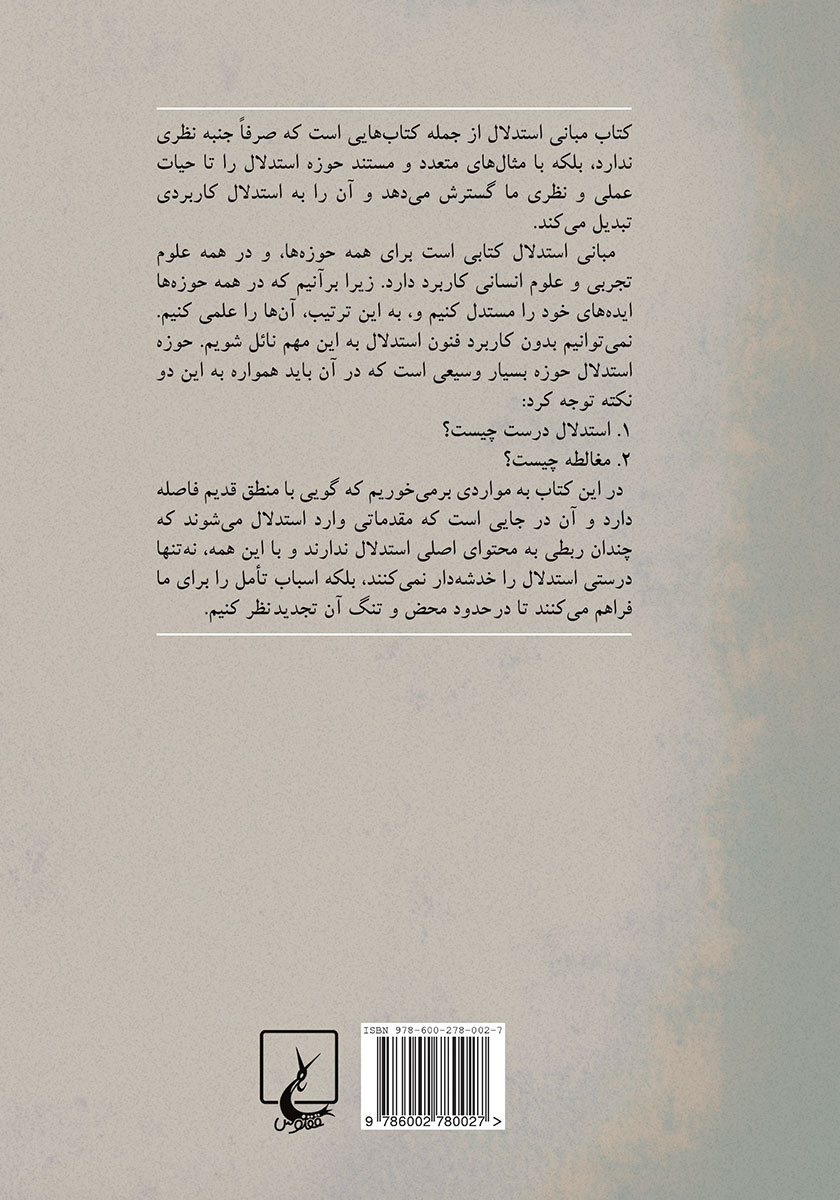 کتاب مبانی استدلال از جمله کتاب‌هایی است که صرفاً جنبه نظری
ندارد، بلکه با مثال‌های متعدد و مستند حوزه استدلال را تا حیات
عملی و نظری ما گسترش می‌دهد و آن را به استدلال کاربردی
تبدیل می‌کند.
مبانی استدلال کتابی است برای همه حوزه‌ها، و در همه علوم
تجربی و علوم انسانی کاربرد دارد. زیرا برآنیم که در همه حوزه‌ها
ایده‌های خود را مستدل کنیم و، به این ترتیب، آن‌ها را علمی کنیم.
نمی‌توانیم بدون کاربرد فنون استدلال به این مهم نائل شویم. حوزه
استدلال حوزه بسیار وسیعی است که در آن باید همواره به این دو
نکته توجه کرد:
۱. استدلال درست چیست؟
۲. مغالطه چیست؟
در این کتاب به مواردی برمی‌خوریم که گویی با منطق قدیم فاصله
دارد و آن در جایی است که مقدماتی وارد استدلال می‌شوند که
چندان ربطی به محتوای اصلی استدلال ندارند و با این همه، نه‌تنها
درستی استدلال را خدشه‌دار نمی‌کنند، بلکه اسباب تأمل را برای ما
فراهم می‌کنند تا در حدود محض و تنگ آن تجدیدنظر کنیم.
ISBN 978-600-278-002-7
9 786002 780027 >
ققنوس